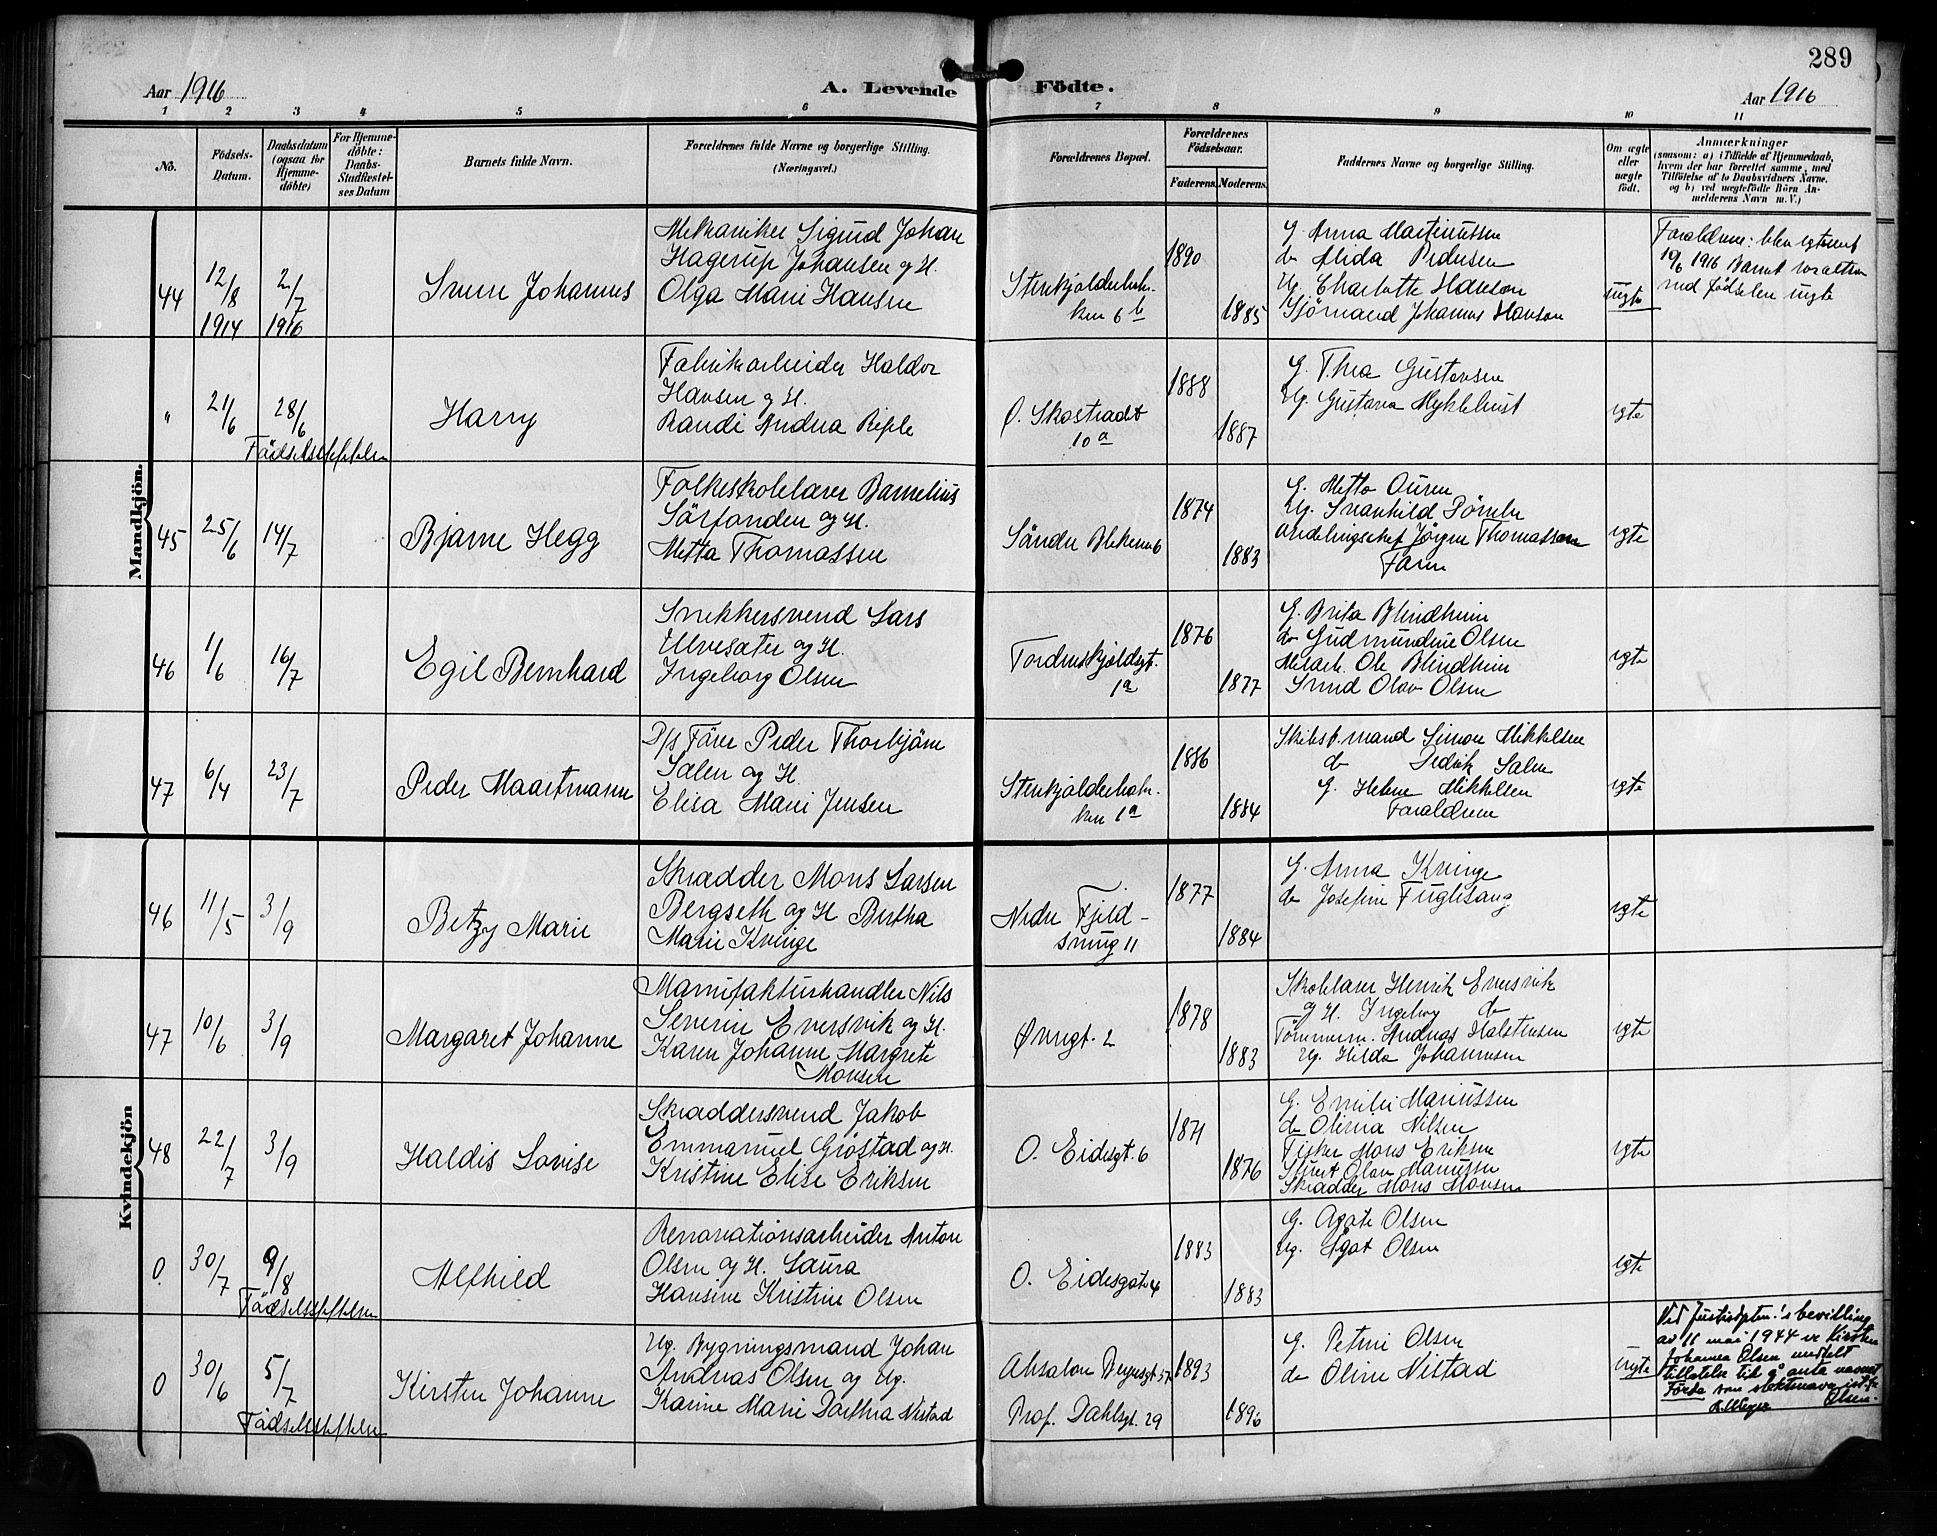 289
Aar 1916
A. Levende Födte.
Aar 1916
1 2 3 4 5 6 7 8 9 10 11
No.
Födsels-
Datum.
Daabsdatum
(ogsaa for
Hjemme-
döbte)
For Hjemme-
döbte:
Daabs-
Stadfæstel-
ses Datum
Barnets fulde Navn.
Forældrenes fulde Navne og borgerlige Stilling.
(Næringsvei.)
Forældrenes Bopæl.
Forældrenes
Födselsaar.
Faderens.
Moderens.
Faddernes Navne og borgerlige Stilling.
Om ægte
eller
uægte
födt.
Anmærkninger
(saasom: a) i Tilfælde af Hjemmedaab,
hvem der har forrettet samme, med
Tilföielse af to Daabsvidners Navne.
og b) ved uægtefödte Börn An-
melderens Navn m. V.)
Mandkjön.
44
12/8
1914
2/7
1916
Sverre Johannes
Mekaniker Sigurd Johan
Hagerup Johansen og H.
Olga Marie Hansen
Stenkjælderbak-
ken 6 b
1890
1885
G. Anna Martinussen
do Alida Pedersen
Ug. Charlotte Hansen
Sjömand Johannes Hansen
uægte
Forældrene blev egteviet
10/6 1916 Barnet
ved födselen uegte
"
21/6
28/6
Födselsseddelen
Harry
Fabrikarbeider Haldor
Hansen og H.
Randi Andrea Riple
Ø. Skostrædet
10 a
1888
1887
G. Thea Gustavsen
Ug. Gustava Myklebust
egte
45
25/6
14/7
Bjarne Hegg
Folkeskolelærer Barnelius
Sörfonden og H.
Metta Thomassen
Söndre Blekevei 6
1874
1883
G. Metta Ouren
Ug. Svanhild
Avdelingschef Jörgen Thomassen
Faren
egte
46
1/6
16/7
Egil Bernhard
Snekkersvend Lars
Ulvesæter og H.
Ingeborg Olsen
Tordenskjoldsgt.
1 a
1876
1877
G. Brita Blindheim
do Gudmundine Olsen
Ole Blindheim
Svend Olav Olsen
egte
47
6/4
23/7
Peder Maartmann
D/s Förer Peder Thorbjörn
Salen og H.
Elisa Marie Jensen
Stenkjælderbak-
ken 1 a
1886
1884
Skibsf.mand Simon Mikkelsen
do Fredrik Salen
G. Helene Mikkelsen
Forældrene
egte
Kvindekjön
46
11/5
3/9
Betzy Marie
Skrædder Mons Larsen
Bergseth og H. Bertha
Marie Kvinge
Nedre Fjeld-
smug 11
1877
1884
G. Anna Kvinge
do Josefine Fuglesang
egte
47
10/6
3/9
Margaret Johanne
Manufakturhandler Nils
Severin Eversvik og H.
Karen Johanne Margrete
Monsen
Øvregt. 2
1878
1883
Skolelærer Henrik Eversvik
og H. Ingeborg do
Tömmerm. Andreas Halstensen
Ug. Hilda Johannesen
egte
48
22/7
3/9
Haldis Lovise
Skræddersvend Jakob
Emmanuel Gröstad og H.
Kristine Elise Eriksen
O. Eidesgt. 6
1871
1876
G. Emilie Mariussen
do Olina Nilsen
Fisker Mons Eriksen
Olav Mariussen
Skrædder Mons Monsen
egte
0
30/7
9/8
Födselsseddelen
Alfhild
Renovationsarbeider Anton
Olsen og H. Laura
Hansine Kristine Olsen
O. Eidesgate 4
1883
1883
G. Agate Olsen
Ug. Agot Olsen
egte
0
30/6
5/7
Födselsseddelen
Kirsten Johanne
Ug. Bygningsmand Johan
Andreas Olsen og Ug.
Karine Marie Dorthea Nistad
Absalon Beyersgt 57
Prof. Dahlsgt. 29
1893
1896
G. Petrine Olsen
do Oline Nistad
uegte
Ved Justisdpten's bevilling
av 11 mai 1944 er Kirsten
Johanne Olsen meddelt
tillatelse til å anta navnet
Förde som slektsnavn istf.
Olsen.